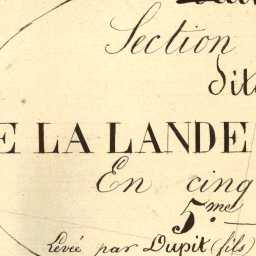 Section
dite
E LA LANDE
En cinq
5.me
Levée par Dupit (fils)